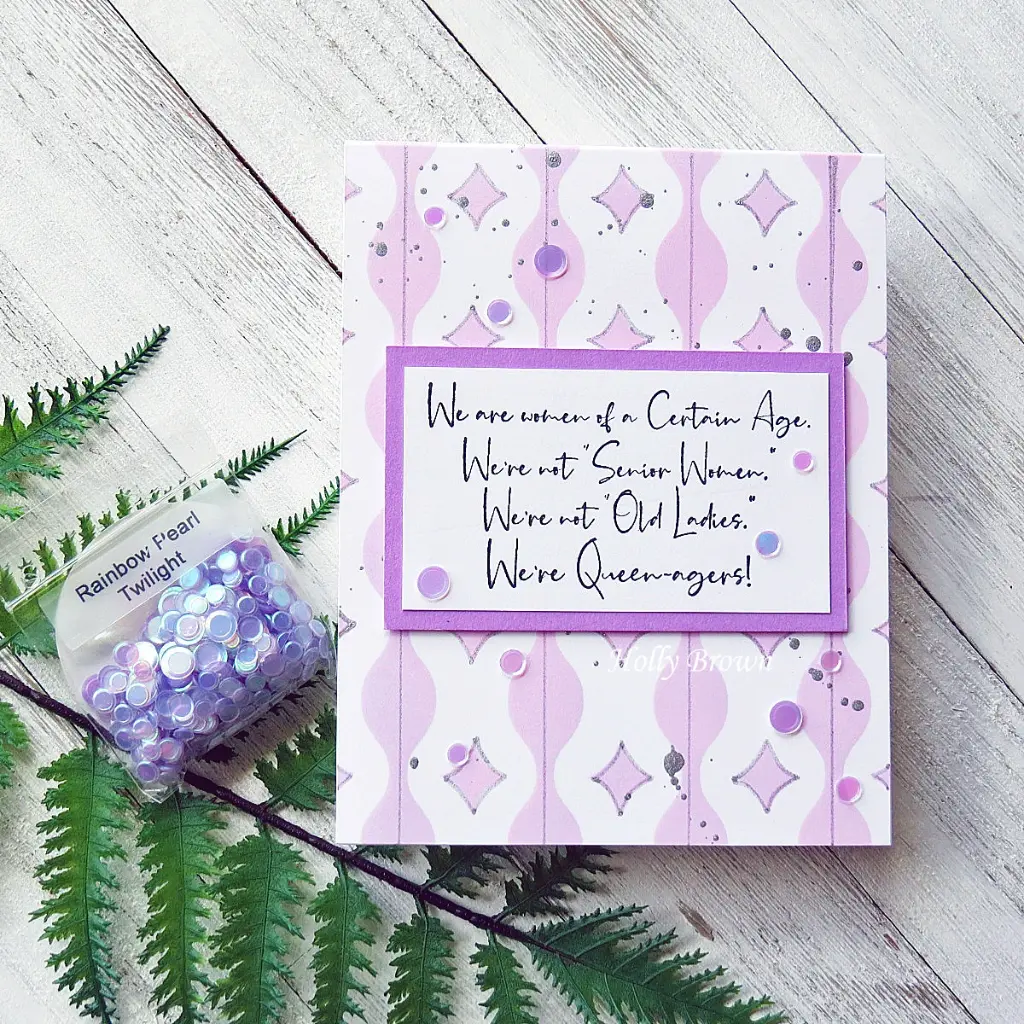 We are women of a Certain Age.
We're not "Senior Women."
We're not "Old Ladies."
We're Queen-agers!
Rainbow Pearl
Twilight
Holly Brown